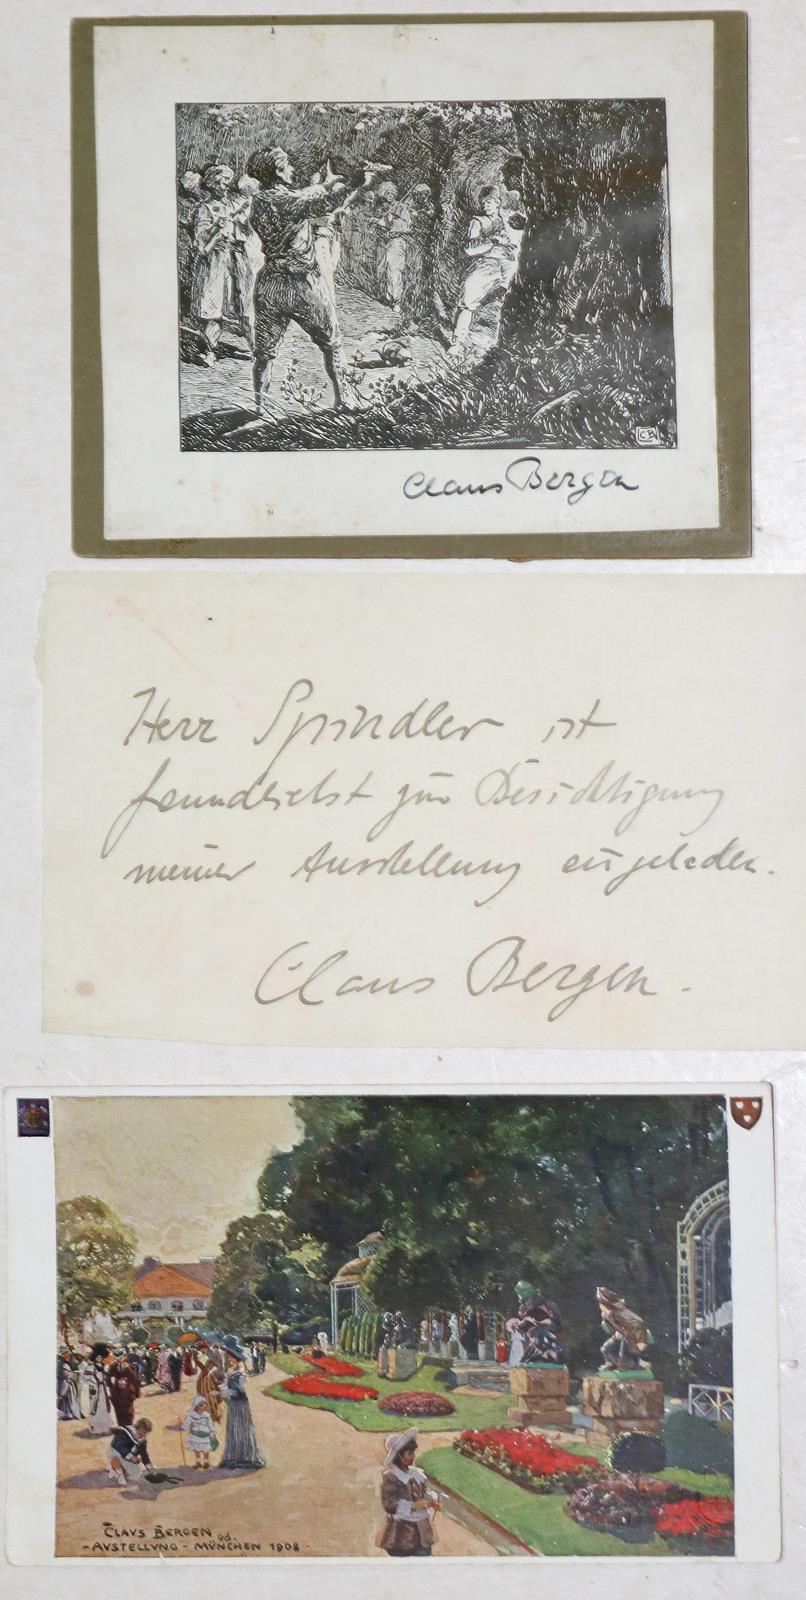 CB
Claus Bergen
Herr Spindler ist
freundlichst zur Besichtigung
meiner Ausstellung eingeladen.
Claus Bergen.
CLAVS BERGEN
- AVSTELLVNG - MÜNCHEN 1908 -